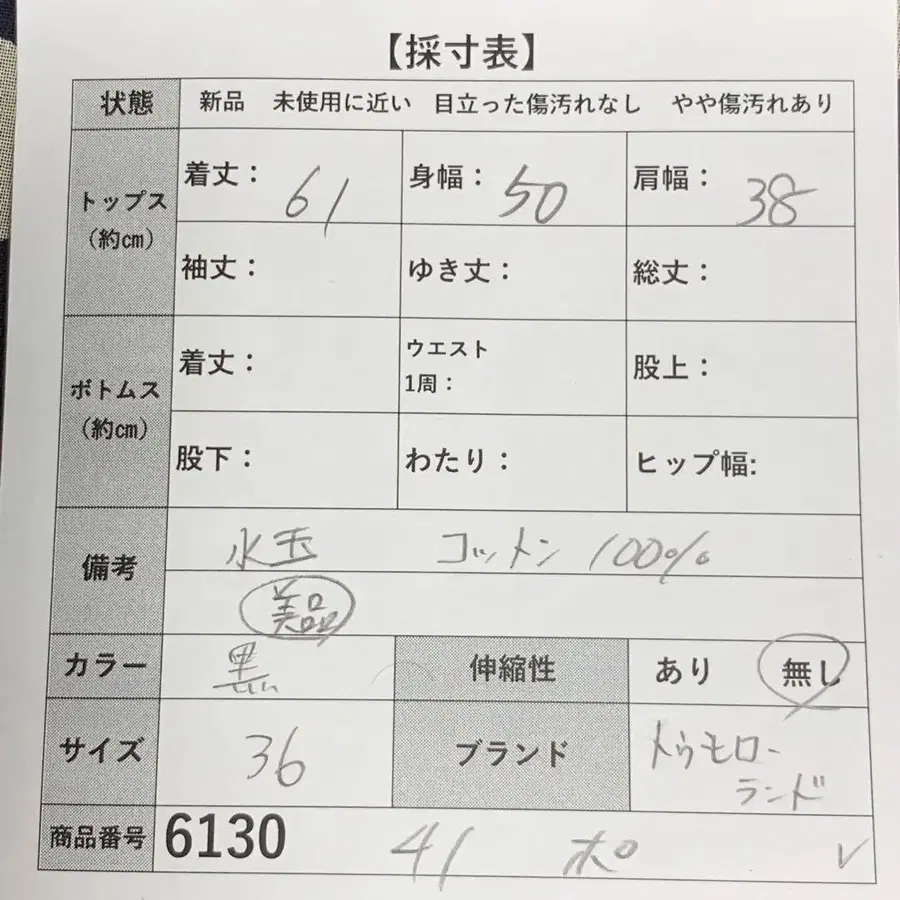 【採寸表】
状態 新品 未使用に近い 目立った傷汚れなし やや傷汚れあり
トップス（約㎝） 着丈： 61 身幅： 50 肩幅： 38
袖丈： ゆき丈： 総丈：
ボトムス（約㎝） 着丈： ウエスト1周： 股上：
股下： わたり： ヒップ幅:
備考 水玉 コットン 100%
美品
カラー 黒 伸縮性 あり 無し
サイズ 36 ブランド トゥモロー
ランド
商品番号 6130 41 ポ ✓